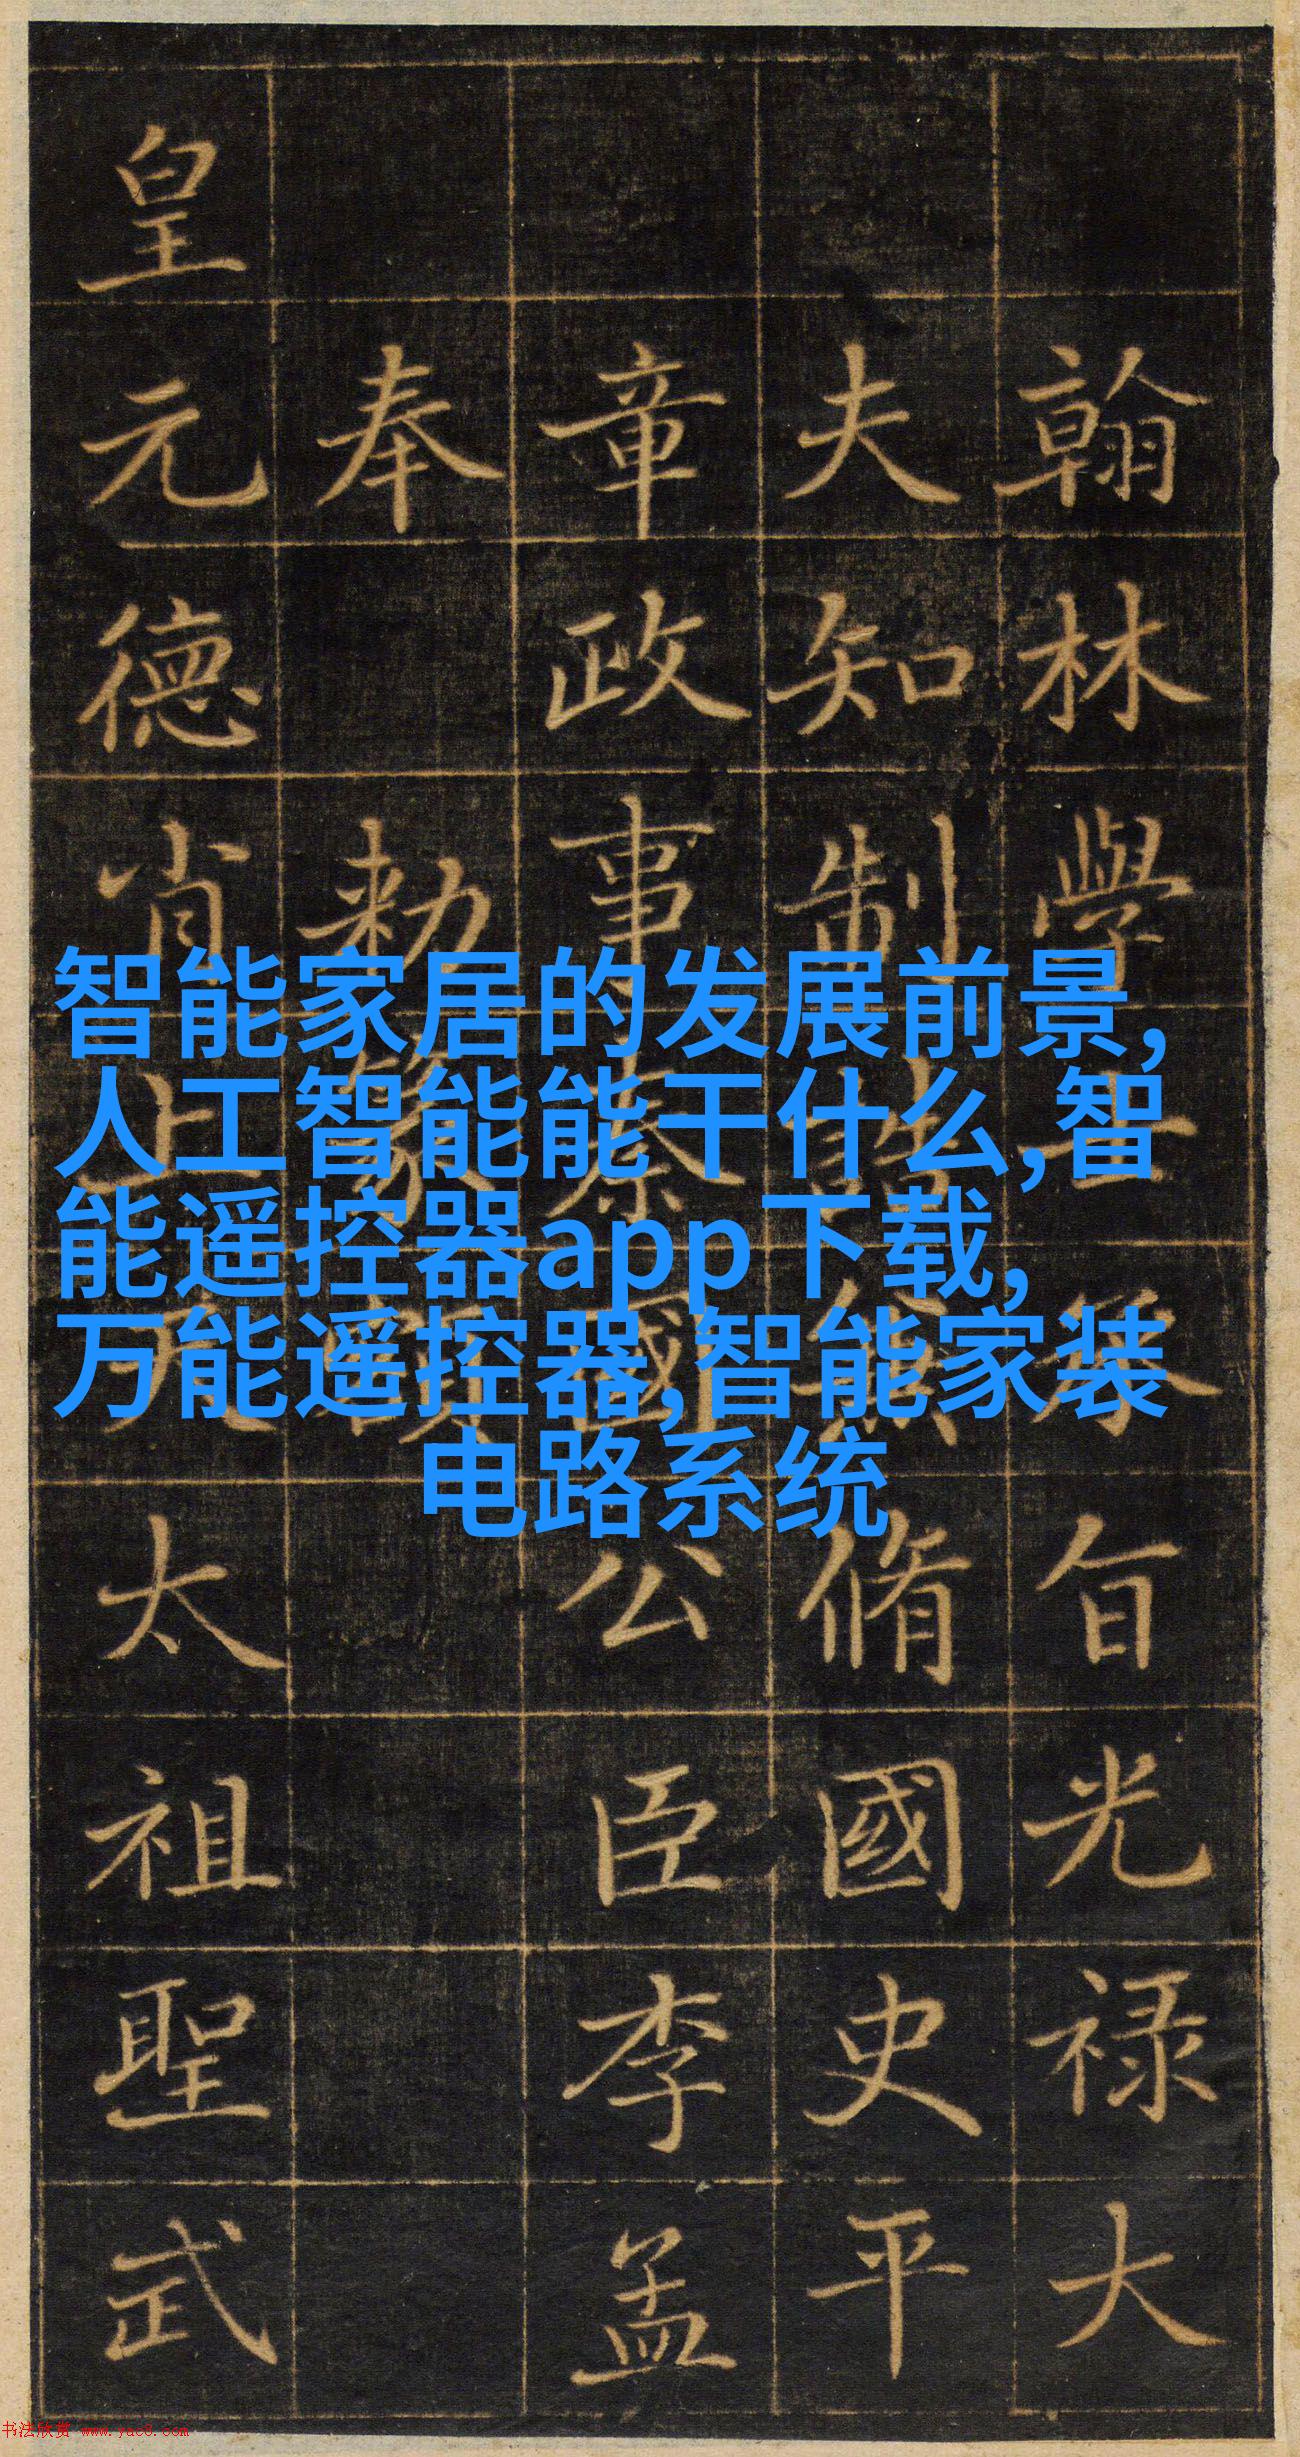 翰林學士承旨光禄大
夫知制誥兼脩國史平
章政事秦國公臣李孟
奉 勅篆額
皇元德肖上天太祖聖武
智能家居的发展前景,
人工智能能干什么,智
能遥控器app下载,
万能遥控器,智能家装
电路系统
书法欣赏 www.yac8.com